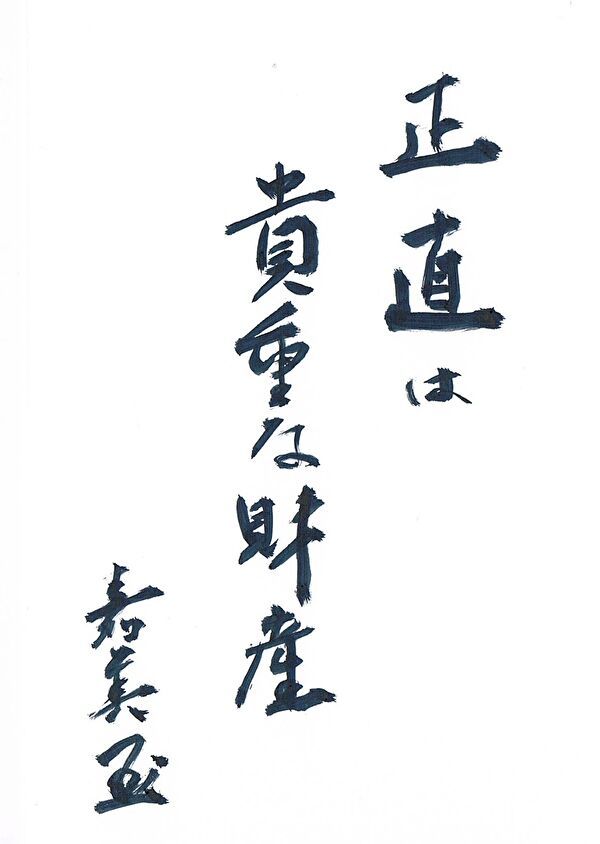 正直は
貴重な財産
嘉美玉